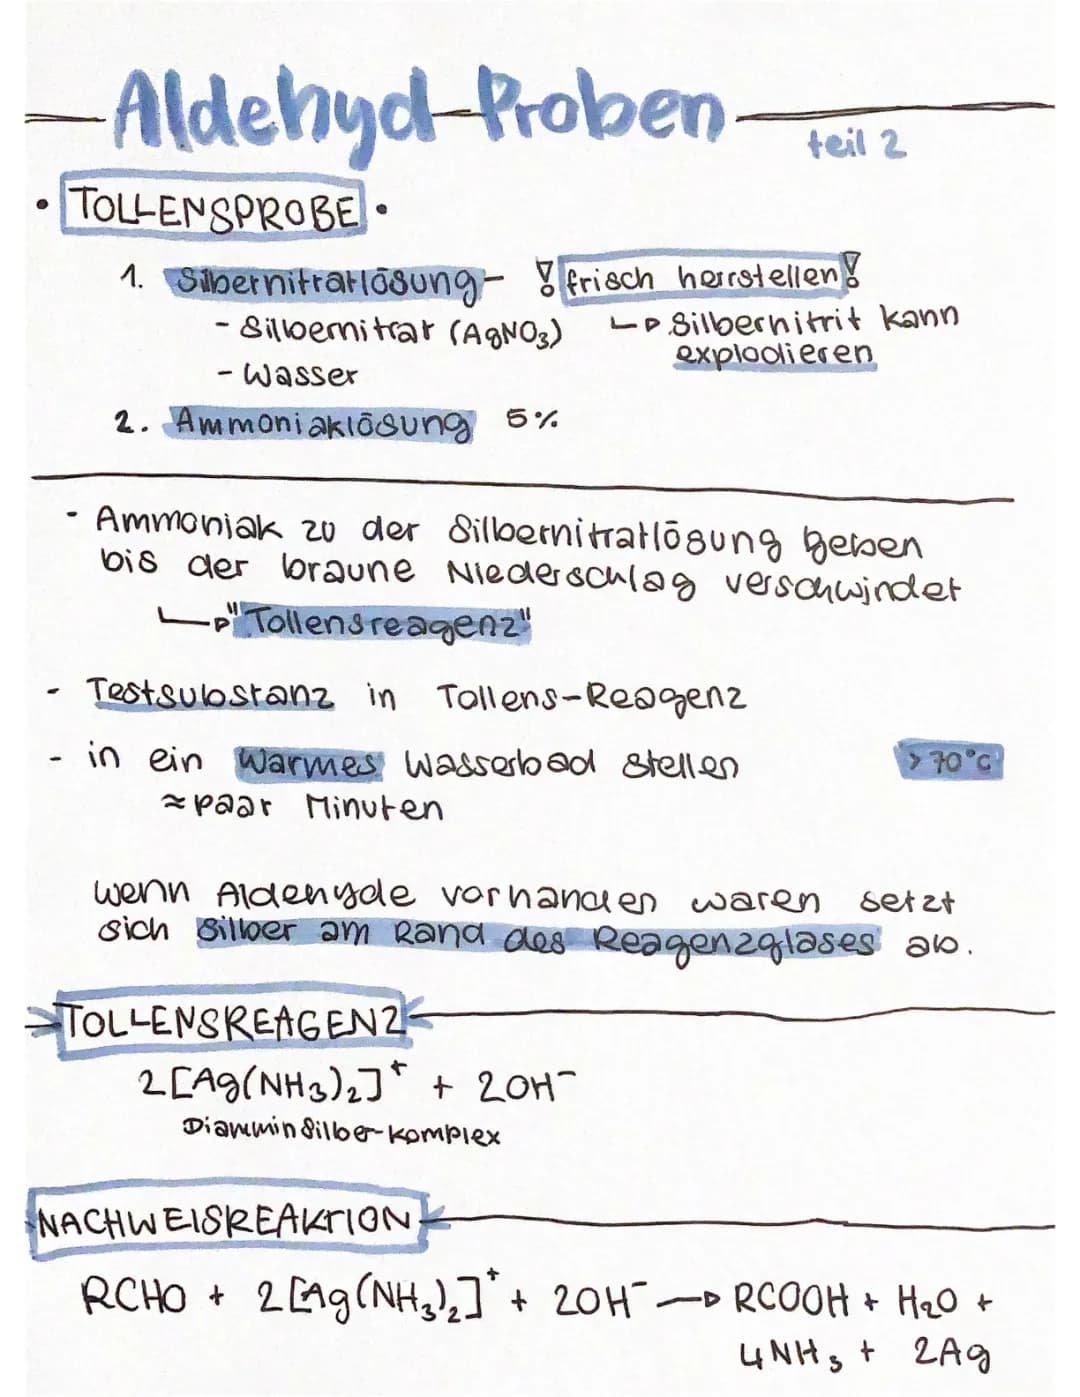 Aldehyd-Proben
teil 2
• TOLLENSPROBE •
1. Silbernitratlösung - ! frisch herrstellen!
- Silbernitrat (AgNO₃) ↳ Silbernitrit kann
explodieren
- Wasser
2. Ammoniaklösung 5%
- Ammoniak zu der Silbernitratlösung geben
bis der braune Niederschlag verschwindet
↳ "Tollensreagenz"
- Testsubstanz in Tollens-Reagenz
- in ein warmes Wasserbad stellen > 70°C
≈ paar Minuten
wenn Aldehyde vorhanden waren setzt
sich Silber am Rand des Reagenzglases ab.
TOLLENSREAGENZ
2[Ag(NH₃)₂]⁺ + 2OH⁻
Diammin Silber-Komplex
NACHWEISREAKTION
RCHO + 2[Ag(NH₃)₂]⁺ + 2OH⁻ → RCOOH + H₂O +
4NH₃ + 2Ag